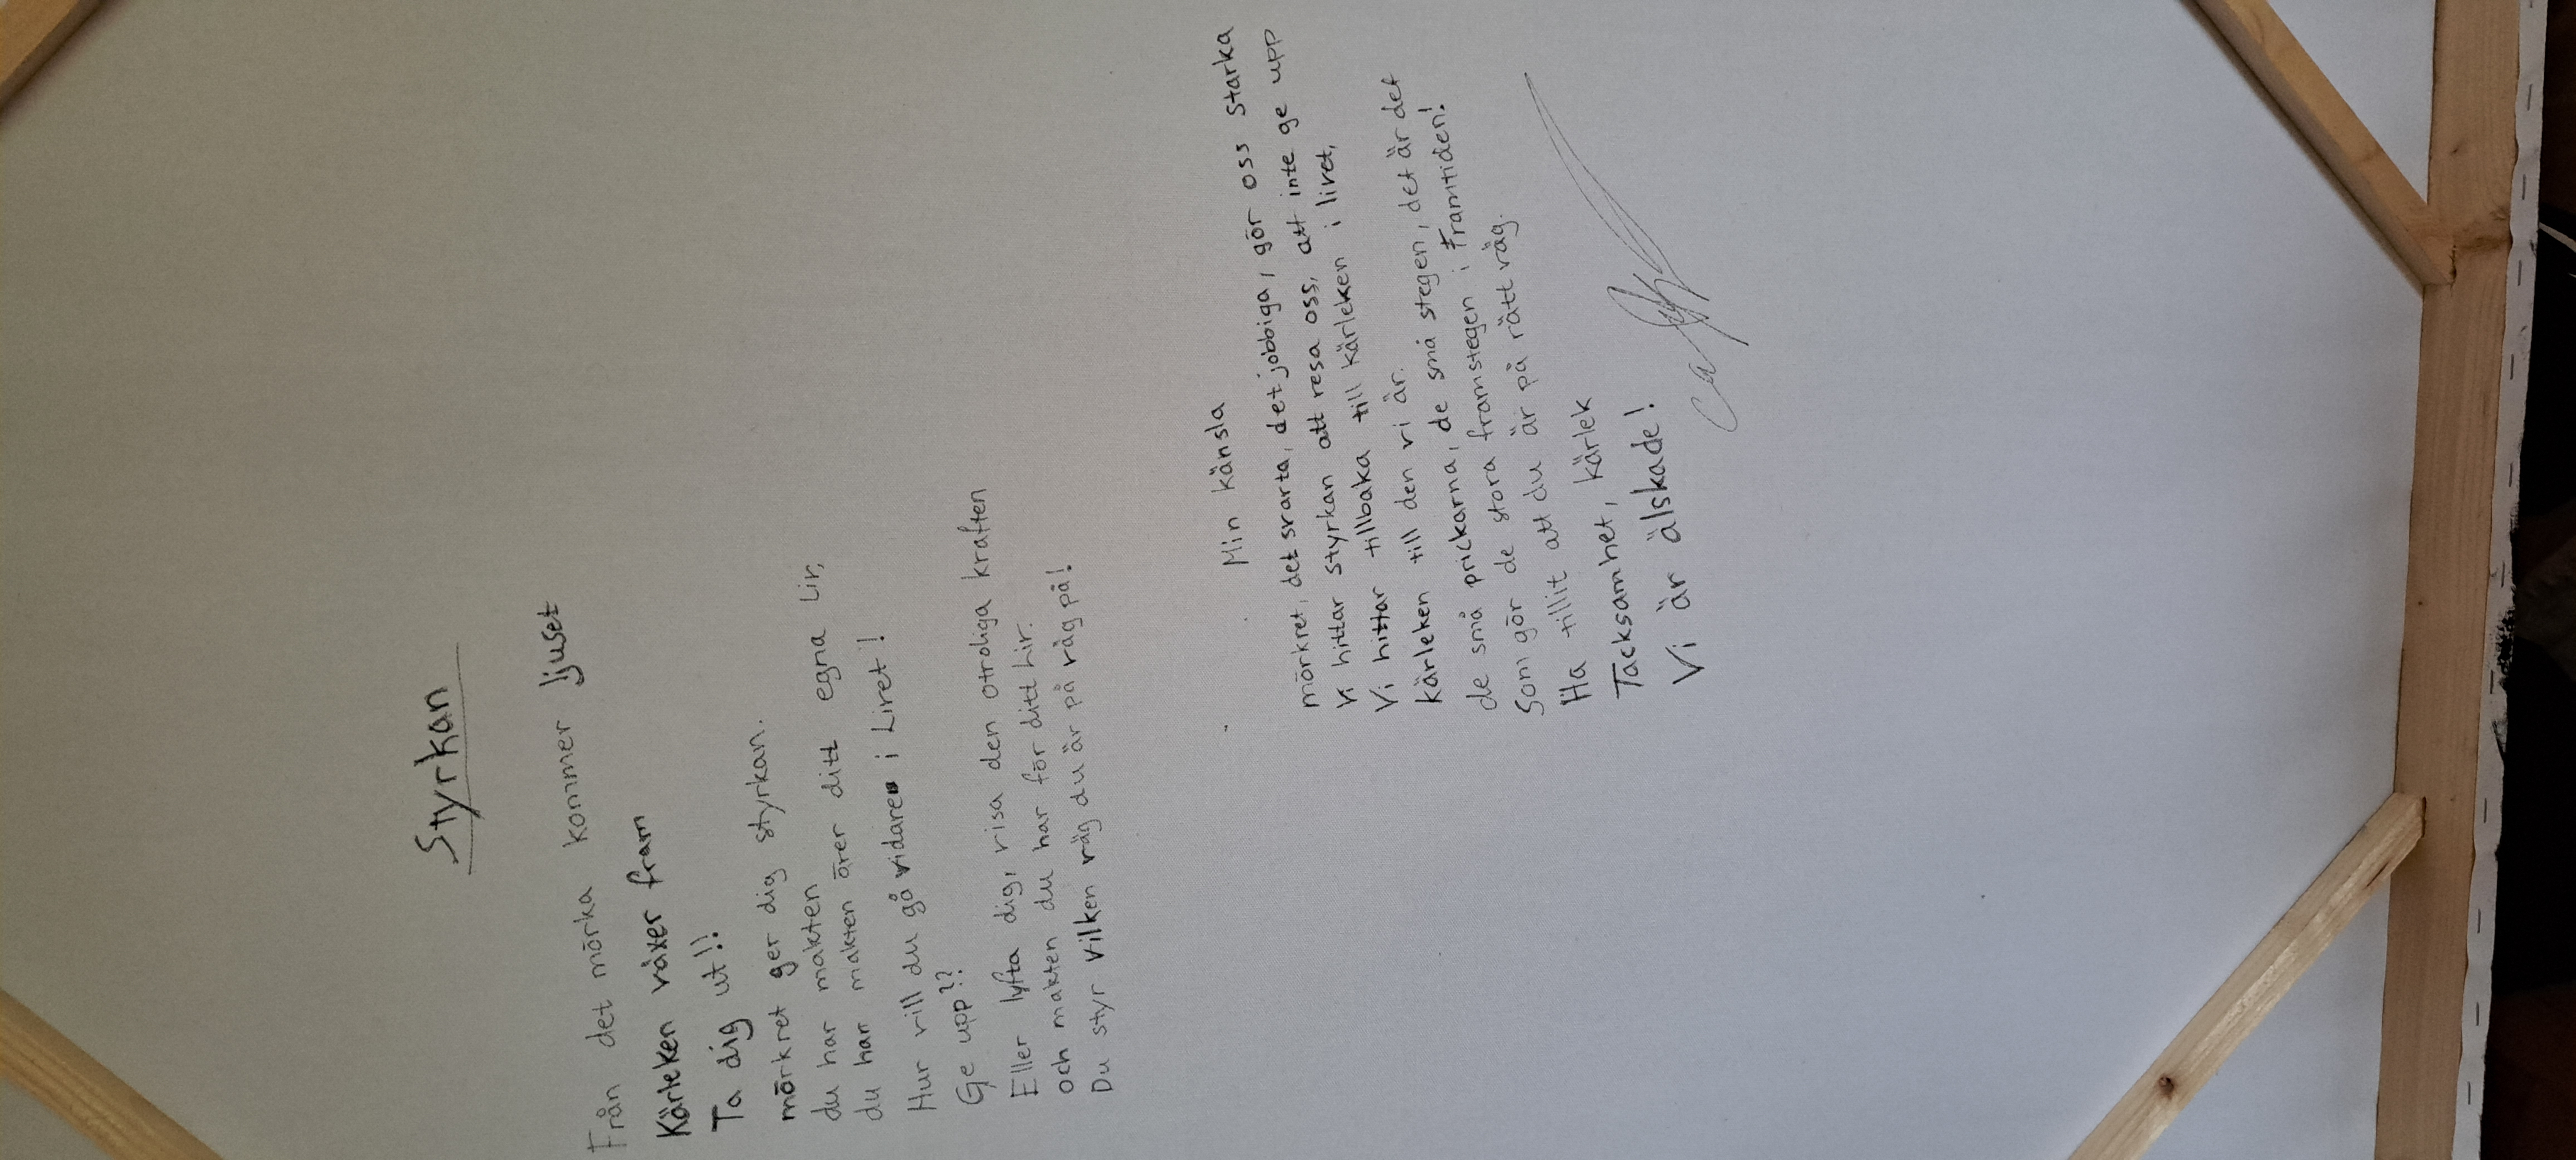 Styrkan
Från det mörka kommer ljuset
Kärleken växer fram
Ta dig ut!!
mörkret ger dig styrkan.
du har makten
du har makten över ditt egna Liv,
Hur vill du gå vidare i Livet!
Ge upp??
Eller lyfta dig, visa den otroliga kraften
och makten du har för ditt Liv.
Du styr vilken väg du är på väg på!
Min känsla
mörkret, det svarta, det jobbiga, gör oss starka
Vi hittar styrkan att resa oss, att inte ge upp
Vi hittar tillbaka till kärleken i livet,
kärleken till den vi är.
de små prickarna, de små stegen, det är det
Som gör de stora framstegen i framtiden!
Ha tillit att du är på rätt väg.
Tacksamhet, kärlek
Vi är älskade!